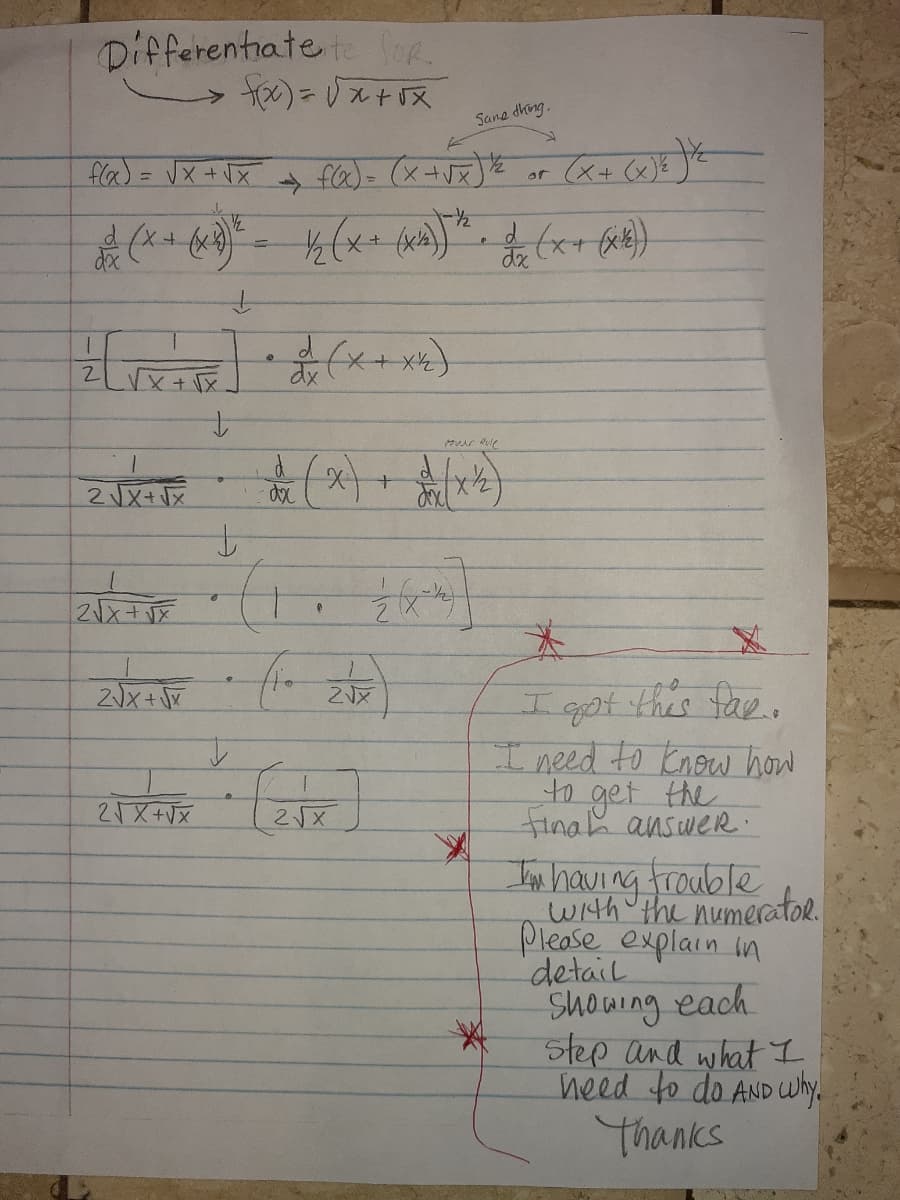 Differentiate
→ f(x) = √x+√x
Same thing.
f(x) = √x+√x → f(x) = (x+√x)^½ or (x+(x)^½)^½
d/dx (x + (x^½))^½ = ½(x + (x^½))^-½ · d/dx (x + (x^½))
↓
1/2 [1/√x+√x] · d/dx (x + x^½)
↓
1/2√x+√x · d/dx (x) + d/dx (x^½)
↓
1/2√x+√x · (1 · 1/2 (x^-½)]
1/2√x+√x · (1 · 1/2√x)
↓
1/2√x+√x · [1/2√x]
I got this far.
I need to know how
to get the
final answer.
I'm having trouble
with the numerator.
Please explain in
detail
showing each
step and what I
need to do AND why.
Thanks